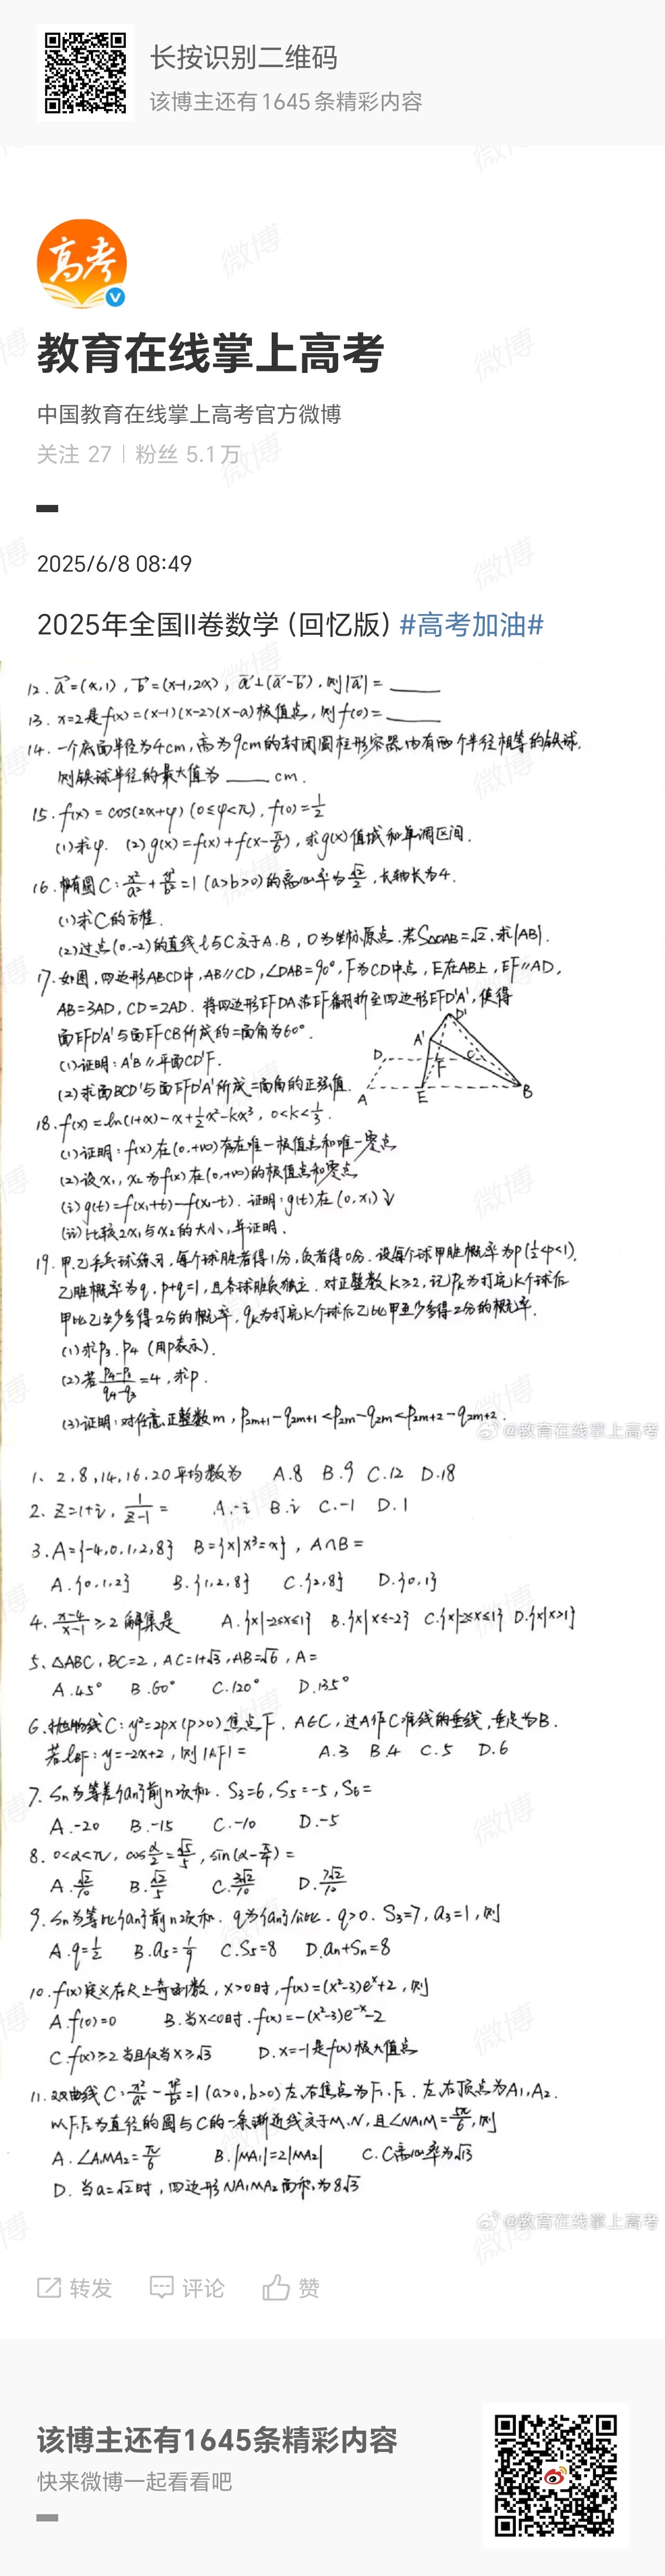 长按识别二维码
该博主还有1645条精彩内容
高考
教育在线掌上高考
中国教育在线掌上高考官方微博
关注 27 | 粉丝 5.1万
2025/6/8 08:49
2025年全国II卷数学 (回忆版) #高考加油#
12. a⃗=(x,1), b⃗=(x-1,2x), a⃗⊥(a⃗-b⃗), 则|a⃗|= ____
13. x=2是f(x)=(x-1)(x-2)(x-a)极值点, 则f(0)= ____
14. 一个底面半径为4cm, 高为9cm的封闭圆柱形容器内有两个半径相等的铁球,
则铁球半径的最大值为 ____ cm.
15. f(x)=cos(2x+φ) (0≤φ<π), f(0)=1/2
(1)求φ. (2) g(x)=f(x)+f(x-π/6), 求g(x)值域和单调区间.
16. 椭圆C: x²/a²+y²/b²=1 (a>b>0)的离心率为√2/2, 长轴长为4.
(1)求C的方程.
(2)过点(0,-2)的直线l与C交于A.B, O为坐标原点. 若S△OAB=√2, 求|AB|.
17. 如图, 四边形ABCD中, AB//CD, ∠DAB=90°, F为CD中点, E在AB上, EF//AD,
AB=3AD, CD=2AD. 将四边形EFDA沿EF翻折至四边形EFD'A', 使得
面EFD'A'与面EFCB所成的二面角为60°.
(1)证明: A'B//平面CD'F.
(2)求面BCD'与面EFD'A'所成二面角的正弦值.
D'
A'
D
C
F
A
E
B
18. f(x)=ln(1+x)-x+½x²-kx³, 0<k<⅓.
(1)证明: f(x)在(0,+∞)存在唯一极值点和唯一零点
(2)设x₁, x₂为f(x)在(0,+∞)的极值点和零点
(i) g(t)=f(x₁+t)-f(x₁-t). 证明: g(t)在(0,x₁)↓
(ii)比较2x₁与x₂的大小, 并证明.
19. 甲.乙乒乓球练习, 每个球胜者得1分, 负者得0分. 设每个球甲胜概率为p(½<p<1),
乙胜概率为q. p+q=1, 且各球胜负独立. 对正整数k≥2, 记pₖ为打完k个球后
甲比乙至少多得2分的概率, qₖ为打完k个球后乙比甲至少多得2分的概率.
(1)求p₃.p₄ (用p表示).
(2)若(p₄-p₃)/(q₄-q₃)=4, 求p.
(3)证明: 对任意正整数m, p₂ₘ₊₁-q₂ₘ₊₁<p₂ₘ-q₂ₘ<p₂ₘ₊₂-q₂ₘ₊₂.
@教育在线掌上高考
1. 2,8,14,16,20平均数为 A.8 B.9 C.12 D.18
2. z=1+i, 1/(z-1)= A.-i B.i C.-1 D.1
3. A={-4,0,1,2,8} B={x|x³=x}, A∩B=
A.{0,1,2} B.{1,2,8} C.{2,8} D.{0,1}
4. (x-4)/(x-1)≥2 解集是 A.{x|-2≤x≤1} B.{x|x≤-2} C.{x|-2≤x≤1} D.{x|x>1}
5. △ABC, BC=2, AC=1+√3, AB=√6, A=
A.45° B.60° C.120° D.135°
6. 抛物线C: y²=2px(p>0) 焦点F, A∈C, 过A作C准线的垂线, 垂足为B.
若lBF: y=-2x+2, 则|AF|= A.3 B.4 C.5 D.6
7. Sn为等差{an}前n项和. S₃=6, S₅=-5, S₆=
A.-20 B.-15 C.-10 D.-5
8. 0<α<π, cos α/2=√5/5, sin(α-π/4)=
A.√2/10 B.√2/5 C.3√2/10 D.7√2/10
9. Sn为等比{an}前n项和. q为{an}公比. q>0. S₃=7, a₃=1, 则
A.q=1/2 B.a₅=1/9 C.S₅=8 D.an+Sn=8
10. f(x)定义在R上奇函数, x>0时, f(x)=(x²-3)eˣ+2, 则
A.f(0)=0 B.当x<0时. f(x)=-(x²-3)e⁻ˣ-2
C.f(x)≥2当且仅当x≥√3 D.x=-1是f(x)极大值点
11. 双曲线C: x²/a²-y²/b²=1 (a>0,b>0)左.右焦点为F₁.F₂. 左.右顶点为A₁,A₂.
以F₁F₂为直径的圆与C的一条渐近线交于M.N, 且∠NA₁M=5π/6, 则
A.∠A₁MA₂=π/6 B.|MA₁|=2|MA₂| C.C离心率为√13
D. 当a=√2时, 四边形NA₁MA₂面积为8√3
@教育在线掌上高考
转发 评论 赞
该博主还有1645条精彩内容
快来微博一起看看吧